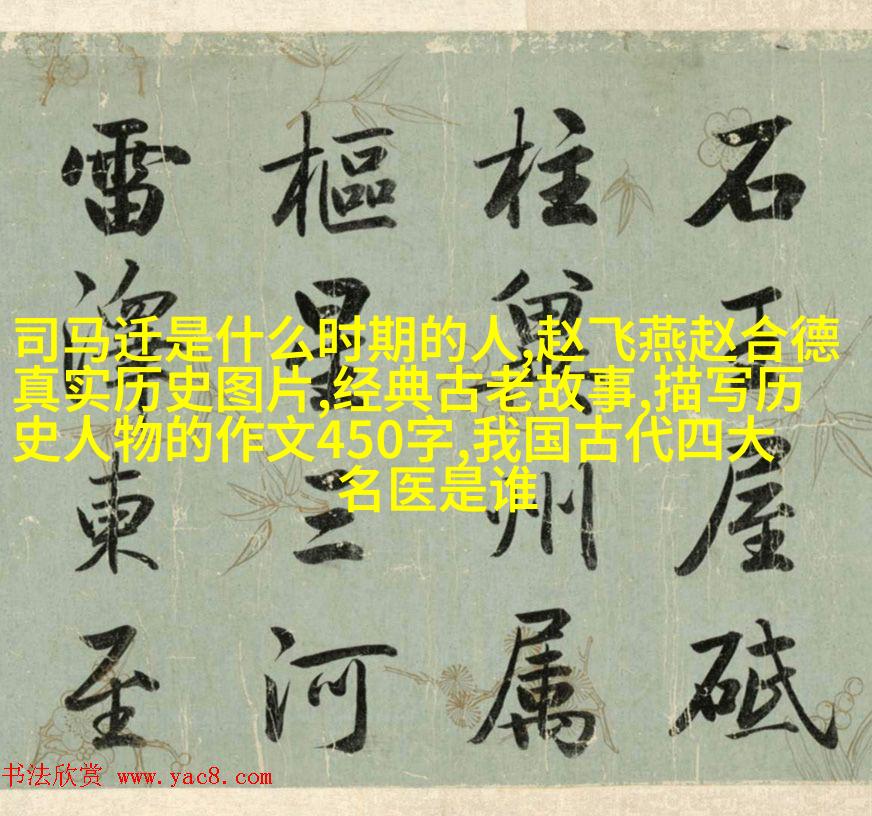 石王屋砥
柱冀州属
樞星三河
雷澤東至
司马迁是什么时期的人,赵飞燕赵合德
真实历史图片,经典古老故事,描写历
史人物的作文450字,我国古代四大
名医是谁
书法欣赏 www.yac8.com